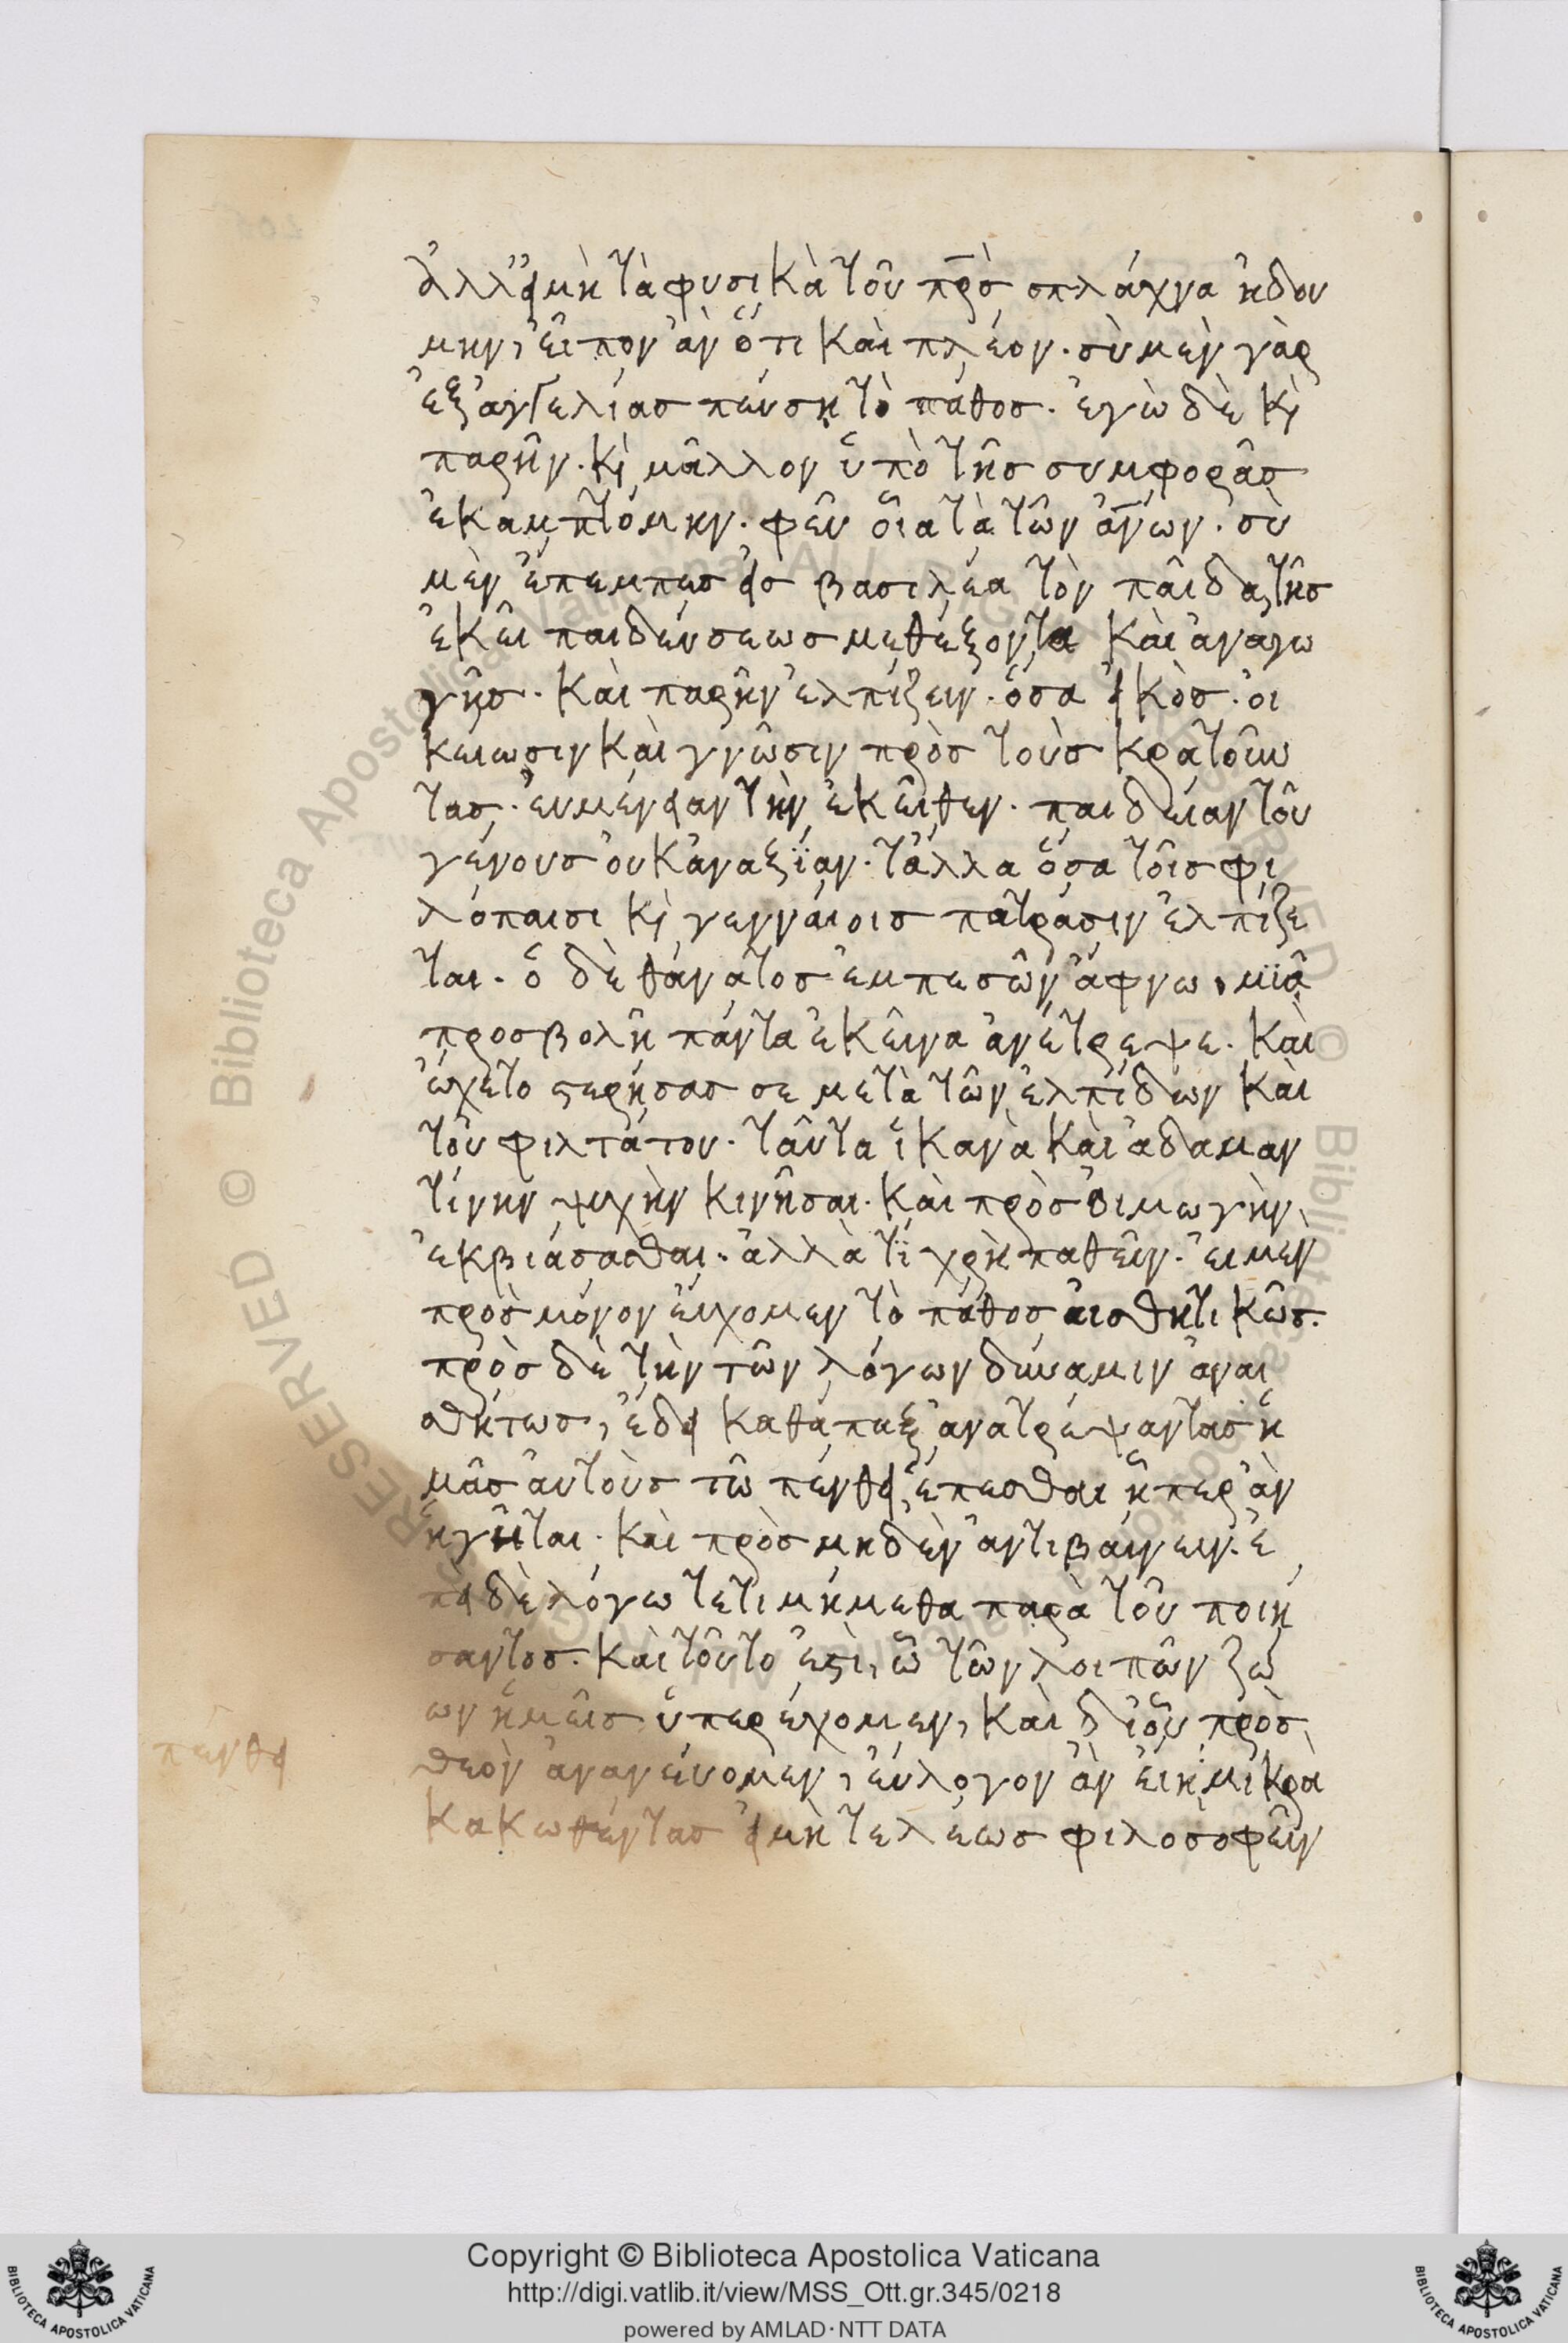 ἀλλ' εἰ μὴ τὰ φυσικὰ τοῦ πρ̅ὸς σπλάχνα ἠδού
μην, εἶπον ἂν ὅτι καὶ πλέον. σὺ μὲν γὰρ
ἐξ ἀγγελίας πεύσῃ τὸ πάθος. ἐγὼ δὲ κὶ
παρῆν. κὶ μᾶλλον ὑπὸ τῆς συμφορᾶς
ἐκαμπτόμην. φεῦ οἷα τὰ τῶν ἀ̅ν̅ων. σὺ
μὲν ἔπεμπες εἰς βασιλέα τὸν παῖδα τῆς
ἐκεῖ παιδεύσεως μεθέξοντα καὶ ἀναγω
γῆς. καὶ παρῆν ἐλπίζειν. ὅσα εἰκὸς. οἰ
κείωσιν καὶ γνῶσιν πρὸς τοὺς κρατοῦν
τας. εὐμένειαν τὴν ἐκεῖθεν. παιδείαν τοῦ
γένους οὐκ ἀναξίαν. τἄλλα ὅσα τοῖς φι
λόπαισι κὶ γενναίοις πατράσιν ἐλπίζε
ται. ὁ δὲ θάνατος ἐμπεσὼν ἄφνω, μϊᾶ
προσβολῆ πάντα ἐκεῖνα ἀνέτρεψε. καὶ
ὤχετο στερήσας σε μετὰ τῶν ἐλπίδων καὶ
τοῦ φιλτάτου. ταῦτα ἱκανὰ καὶ ἀδαμαν
τίνην ψυχὴν κινῆσαι. καὶ πρὸς οἰμωγὴν
ἐκβιάσασθαι. ἀλλὰ τί χρὴ παθεῖν. εἰ μὲν
πρὸς μόνον εἴχομεν τὸ πάθος αἰσθητικῶς.
πρὸς δὲ τὴν τῶν λόγων δύναμιν ἀναι
σθήτως, ἔδει καθάπαξ ἀνατρέψαντας ἡ
μᾶς αὐτοὺς τῶ πένθει, ἕπεσθαι ᾗπερ ἂν
ἡγῆται. καὶ πρὸς μηδὲν ἀντιβαίνειν. ἐ
πεὶ δὲ λόγω τετιμήμεθα παρὰ τοῦ ποιή
σαντος. καὶ τοῦτο ἐστὶ, ὧ τῶν λοιπῶν ζώ
ων ἡμεῖς ὑπερέχομεν, καὶ δι' οὗ πρὸς
θεὸν ἀνανεύομεν, εὔλογον ἂν εἴη μικρὰ
κακωθέντας εἰ μὴ τελέως φιλοσοφεῖν
πένθει
Copyright © Biblioteca Apostolica Vaticana
http://digi.vatlib.it/view/MSS_Ott.gr.345/0218
powered by AMLAD·NTT DATA
BIBLIOTECA APOSTOLICA VATICANA
BIBLIOTECA APOSTOLICA VATICANA